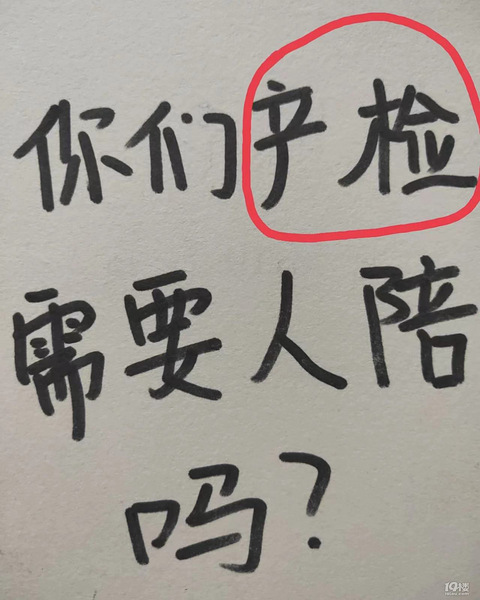 你们产检
需要人陪
吗?
19楼
19lou.com